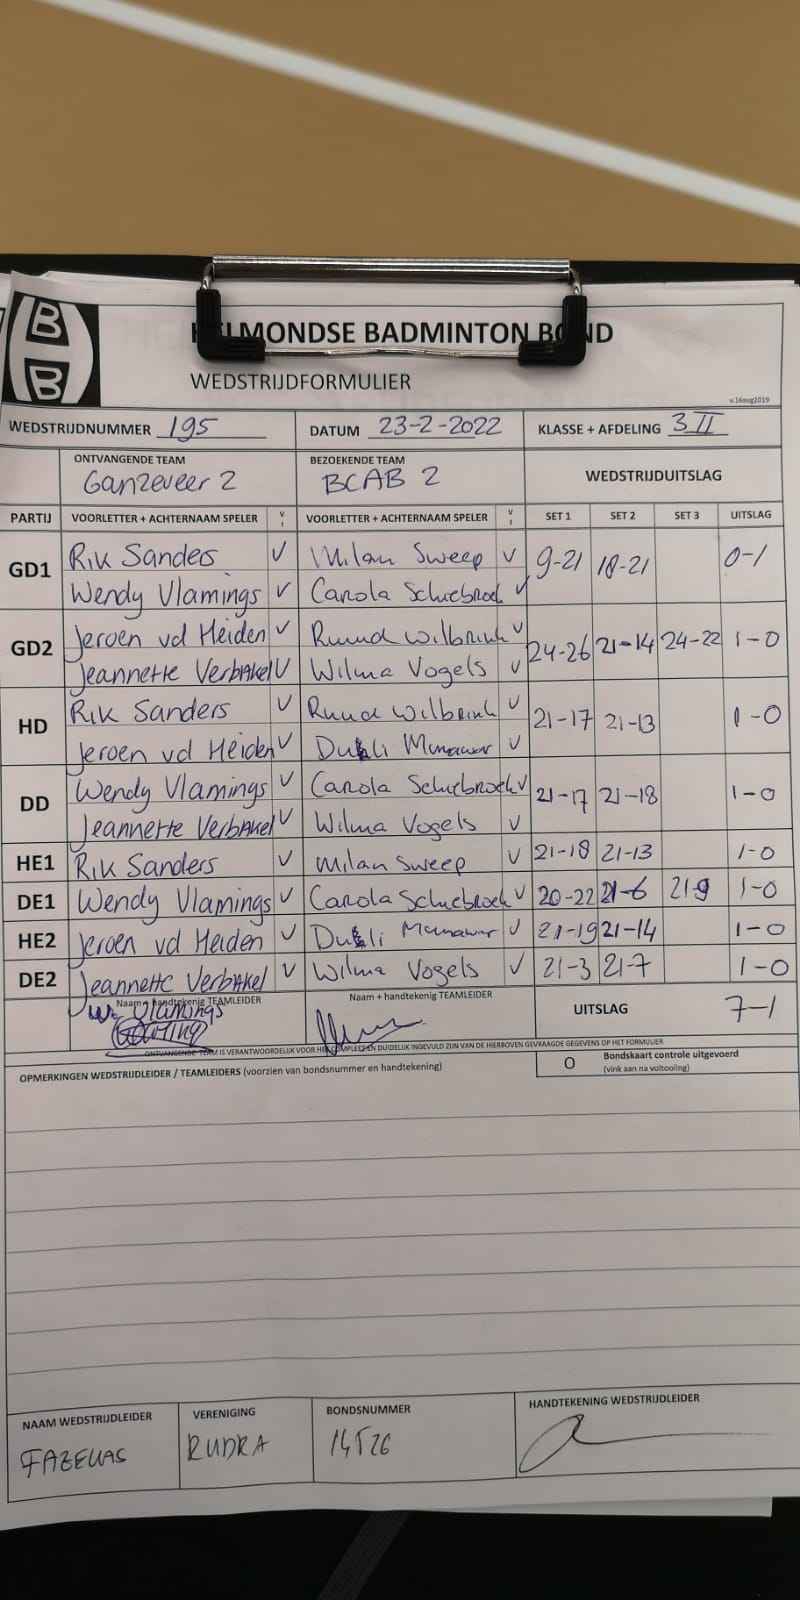 HBB
HELMONDSE BADMINTON BOND
WEDSTRIJDFORMULIER
v.16aug2019
WEDSTRIJDNUMMER 195 DATUM 23-2-2022 KLASSE + AFDELING 3 II
ONTVANGENDE TEAM BEZOEKENDE TEAM WEDSTRIJDUITSLAG
Ganzeveer 2 BCAB 2
PARTIJ VOORLETTER + ACHTERNAAM SPELER V VOORLETTER + ACHTERNAAM SPELER V SET 1 SET 2 SET 3 UITSLAG
GD1 Rik Sanders V Milan Sweep V 9-21 18-21 0-1
Wendy Vlamings V Carola Schiebroek V
GD2 Jeroen vd Heiden V Ruud Wilbrink V 24-26 21-14 24-22 1-0
Jeannette Verbakel V Wilma Vogels V
HD Rik Sanders V Ruud Wilbrink V 21-17 21-13 1-0
Jeroen vd Heiden V Munawar V
DD Wendy Vlamings V Carola Schiebroek V 21-17 21-18 1-0
Jeannette Verbakel V Wilma Vogels V
HE1 Rik Sanders V Milan Sweep V 21-18 21-13 1-0
DE1 Wendy Vlamings V Carola Schiebroek V 20-22 21-6 21-9 1-0
HE2 Jeroen vd Heiden V Munawar V 21-19 21-14 1-0
DE2 Jeannette Verbakel V Wilma Vogels V 21-3 21-7 1-0
Naam + handtekenig TEAMLEIDER Naam + handtekenig TEAMLEIDER UITSLAG 7-1
W. Vlamings
ONTVANGENDE TEAM IS VERANTWOORDELIJK VOOR HET COMPLEET EN DUIDELIJK INGEVULD ZIJN VAN DE HIERBOVEN GEVRAAGDE GEGEVENS OP HET FORMULIER
OPMERKINGEN WEDSTRIJDLEIDER / TEAMLEIDERS (voorzien van bondsnummer en handtekening) O Bondskaart controle uitgevoerd
(vink aan na voltooiing)
NAAM WEDSTRIJDLEIDER VERENIGING BONDSNUMMER HANDTEKENING WEDSTRIJDLEIDER
FAZEKAS RUDRA 14526